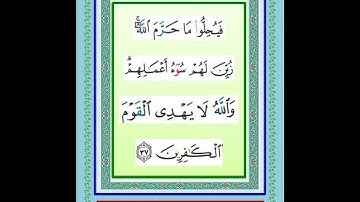 فَيُحِلُّوا۟ مَا حَرَّمَ ٱللَّهُ ۚ
زُيِّنَ لَهُمْ سُوٓءُ أَعْمَـٰلِهِمْ ۗ
وَٱللَّهُ لَا يَهْدِى ٱلْقَوْمَ
ٱلْكَـٰفِرِينَ ٣٧